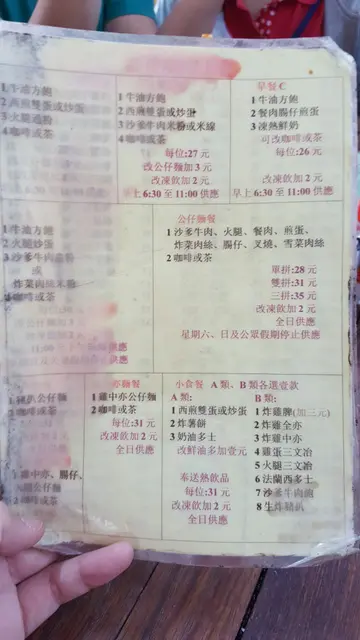 1 牛油方飽
2 西煎雙蛋或炒蛋
3 火腿通粉
4 咖啡或茶
1 牛油方飽
2 西煎雙蛋或炒蛋
3 沙爹牛肉米粉或米線
4 咖啡或茶
每位:27 元
改公仔麵加 3 元
改凍飲加 2 元
早上 6:30 至 11:00 供應
早餐 C
1 牛油方飽
2 餐肉腸仔煎蛋
3 凍熱鮮奶
可改咖啡或茶
每位:26 元
改凍飲加 2 元
早上 6:30 至 11:00 供應
1 牛油方飽
2 火腿炒蛋
3 沙爹牛肉意粉
或
炸菜肉絲米粉
4 咖啡或茶
公仔麵餐
1 沙爹牛肉、火腿、餐肉、煎蛋、
炸菜肉絲、腸仔、叉燒、雪菜肉絲
2 咖啡或茶
單拼:28 元
雙拼:31 元
三拼:35 元
改凍飲加 2 元
全日供應
星期六、日及公眾假期停止供應
公仔麵
2 咖啡或茶
1 雞中亦、腸仔、
公仔麵
2 咖啡或茶
亦麵餐
1 雞中亦公仔麵
2 咖啡或茶
每位:31 元
改凍飲加 2 元
全日供應
小食餐 A 類、B 類各選壹款
A 類:
1 西煎雙蛋或炒蛋
2 炸薯餅
3 奶油多士
改鮮油多加壹元
奉送熱飲品
每位:31 元
改凍飲加 2 元
全日供應
B 類:
1 炸雞脾(加三元)
2 炸雞全亦
3 炸雞中亦
4 雞蛋三文治
5 火腿三文治
6 法蘭西多士
7 沙爹牛肉飽
8 生炸豬扒